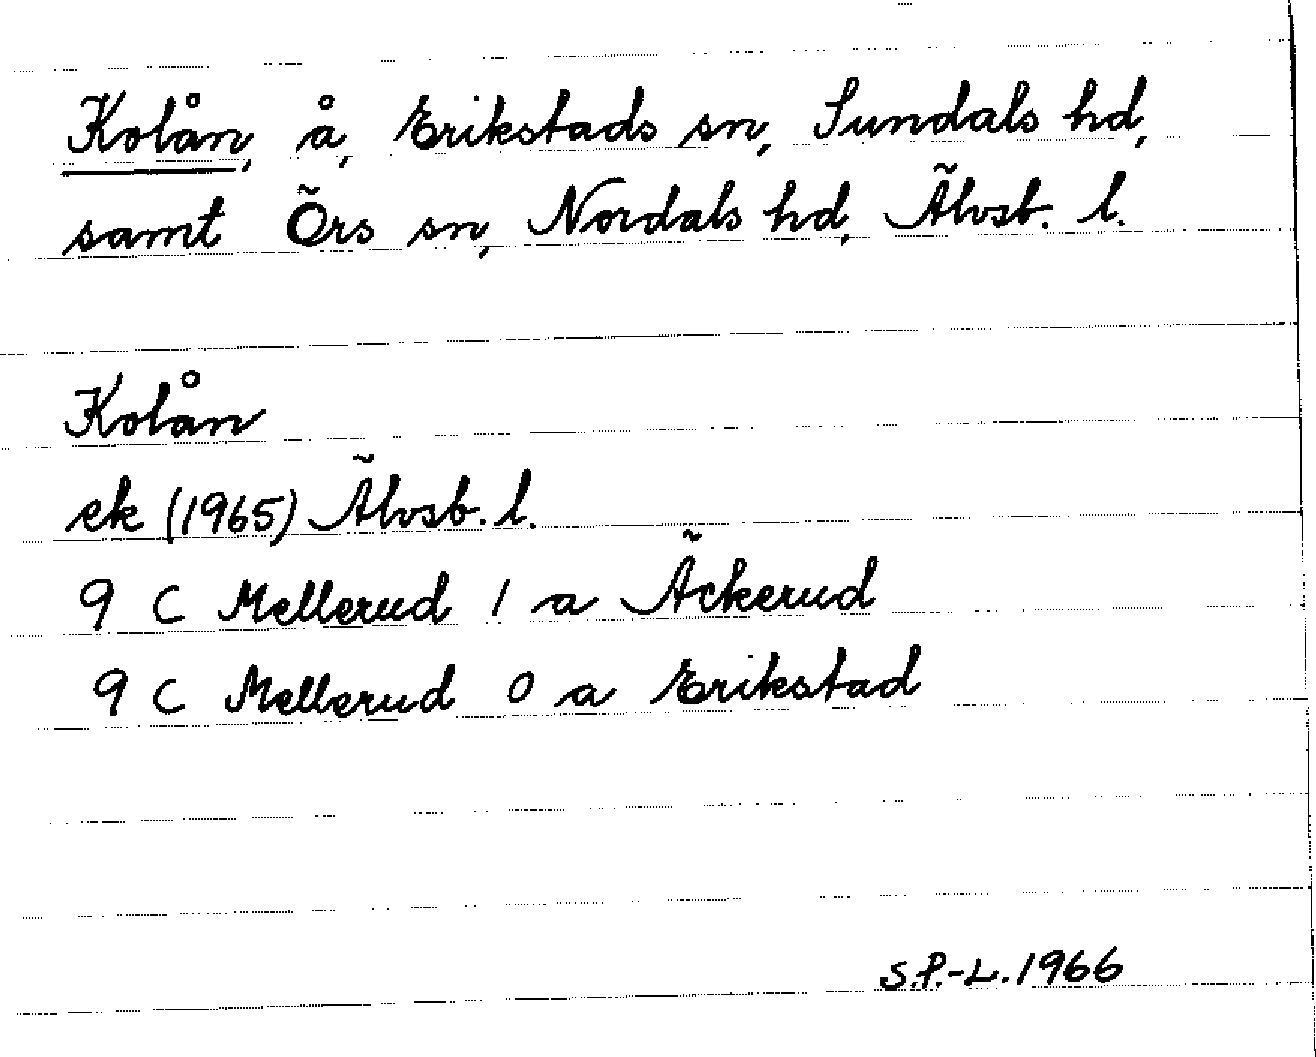 Kolån, å, Erikstads sn, Sundals hd,
samt Örs sn, Nordals hd, Älvsb. l.
Kolån
ek (1965) Älvsb. l.
9 C Mellerud 1 a Äckerud
9 C Mellerud 0 a Erikstad
S.P.-L. 1966